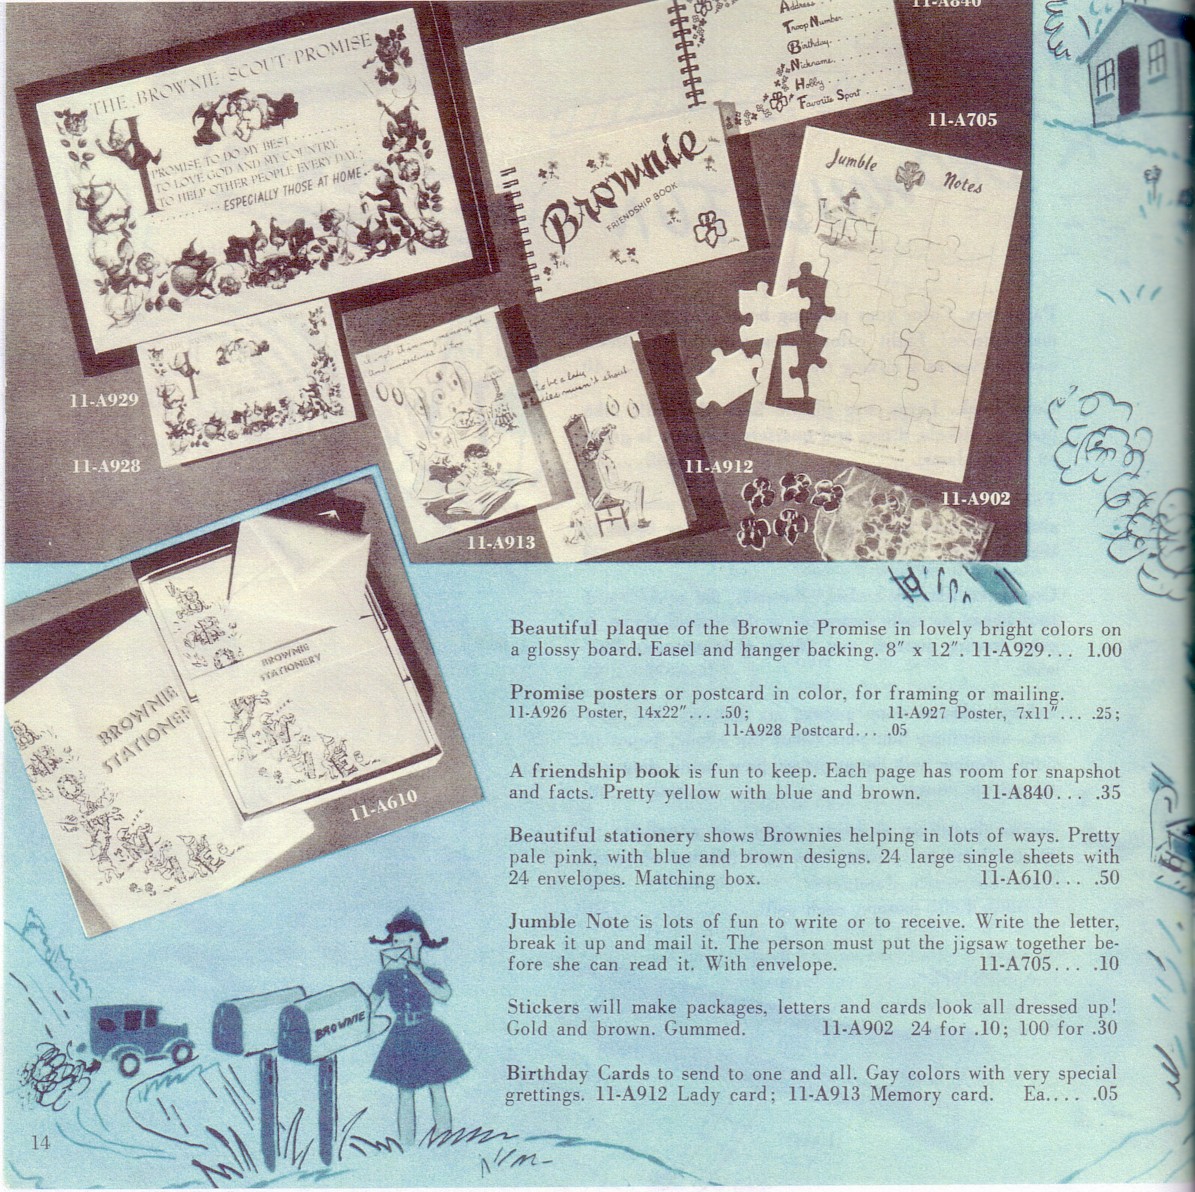 11-A840
Address
Troop Number
Birthday
Nickname
Hobby
Favorite Sport
THE BROWNIE SCOUT PROMISE
I PROMISE TO DO MY BEST
TO LOVE GOD AND MY COUNTRY,
TO HELP OTHER PEOPLE EVERY DAY,
ESPECIALLY THOSE AT HOME.
Brownie
FRIENDSHIP BOOK
11-A705
Jumble Notes
11-A929
11-A928
11-A912
11-A902
11-A913
BROWNIE
STATIONERY
BROWNIE
STATIONERY
11-A610
Beautiful plaque of the Brownie Promise in lovely bright colors on
a glossy board. Easel and hanger backing. 8" x 12". 11-A929... 1.00
Promise posters or postcard in color, for framing or mailing.
11-A926 Poster, 14x22"... .50; 11-A927 Poster, 7x11"... .25;
11-A928 Postcard... .05
A friendship book is fun to keep. Each page has room for snapshot
and facts. Pretty yellow with blue and brown. 11-A840... .35
Beautiful stationery shows Brownies helping in lots of ways. Pretty
pale pink, with blue and brown designs. 24 large single sheets with
24 envelopes. Matching box. 11-A610... .50
Jumble Note is lots of fun to write or to receive. Write the letter,
break it up and mail it. The person must put the jigsaw together be-
fore she can read it. With envelope. 11-A705... .10
Stickers will make packages, letters and cards look all dressed up!
Gold and brown. Gummed. 11-A902 24 for .10; 100 for .30
Birthday Cards to send to one and all. Gay colors with very special
grettings. 11-A912 Lady card; 11-A913 Memory card. Ea.... .05
BROWNIE
14